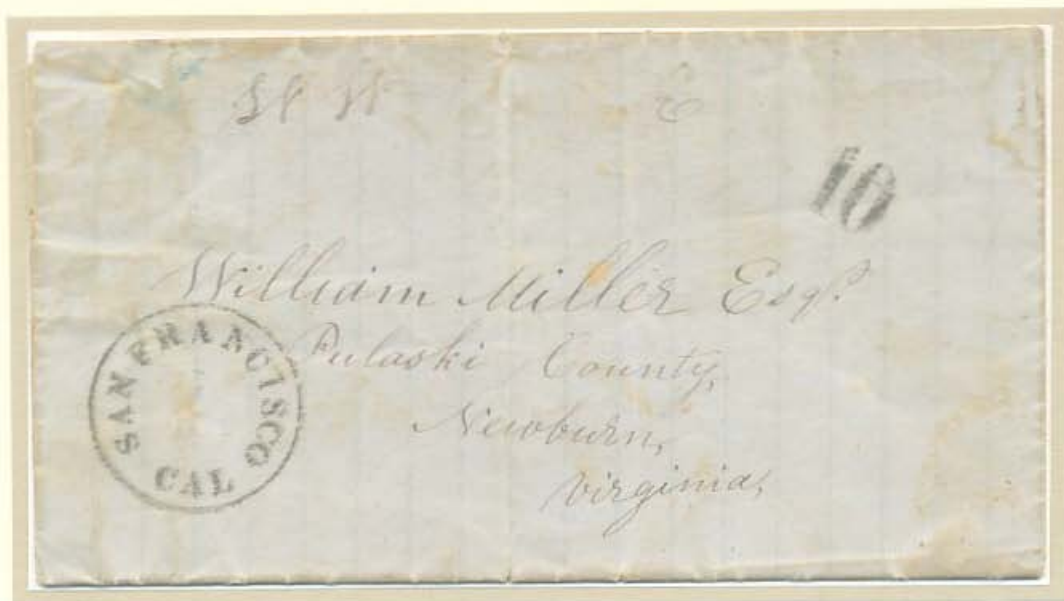 10
William Miller Esqr.
Pulaski County,
Newburn,
Virginia,
SAN FRANCISCO
CAL